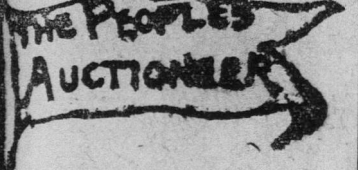 THE PEOPLES
AUCTIONEER